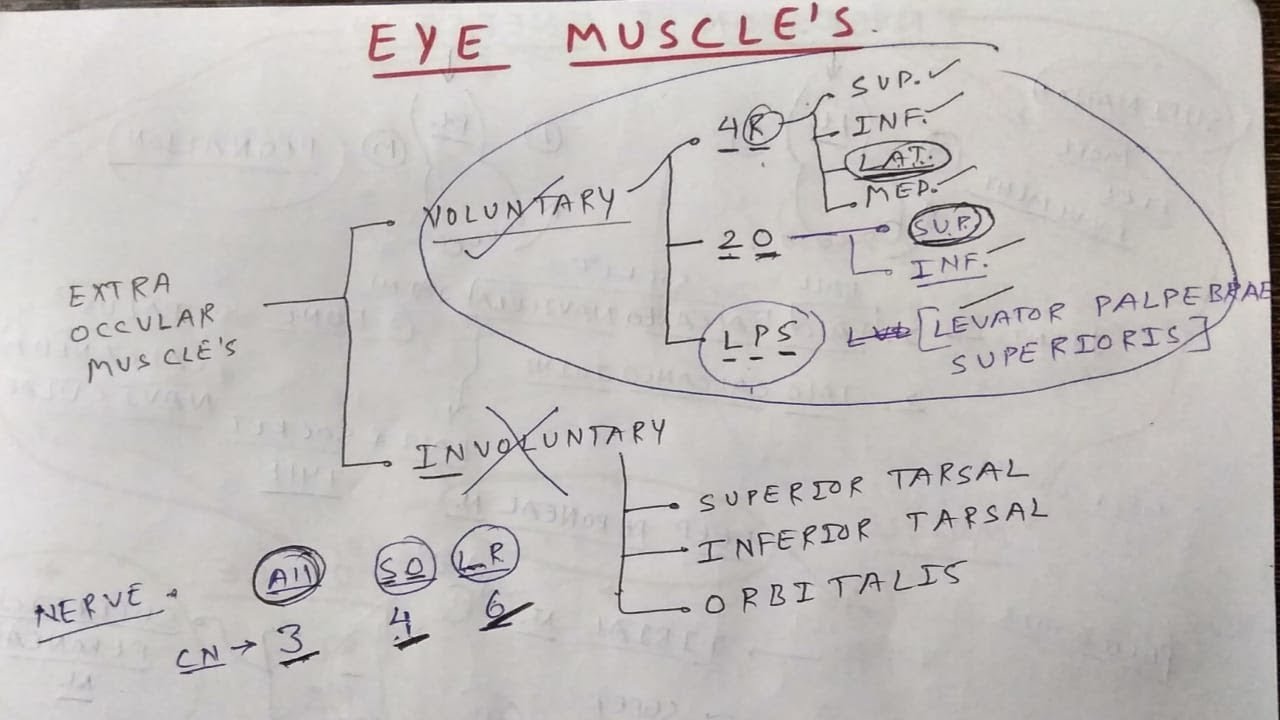 EYE MUSCLE'S.
EXTRA
OCCULAR
MUSCLE'S
VOLUNTARY
4R
SUP.
INF.
LAT.
MED.
2O
SUP.
INF.
LPS
[LEVATOR PALPEBRAE
SUPERIORIS]
INVOLUNTARY
SUPERIOR TARSAL
INFERIOR TARSAL
ORBITALIS
NERVE. All SO LR
CN → 3 4 6